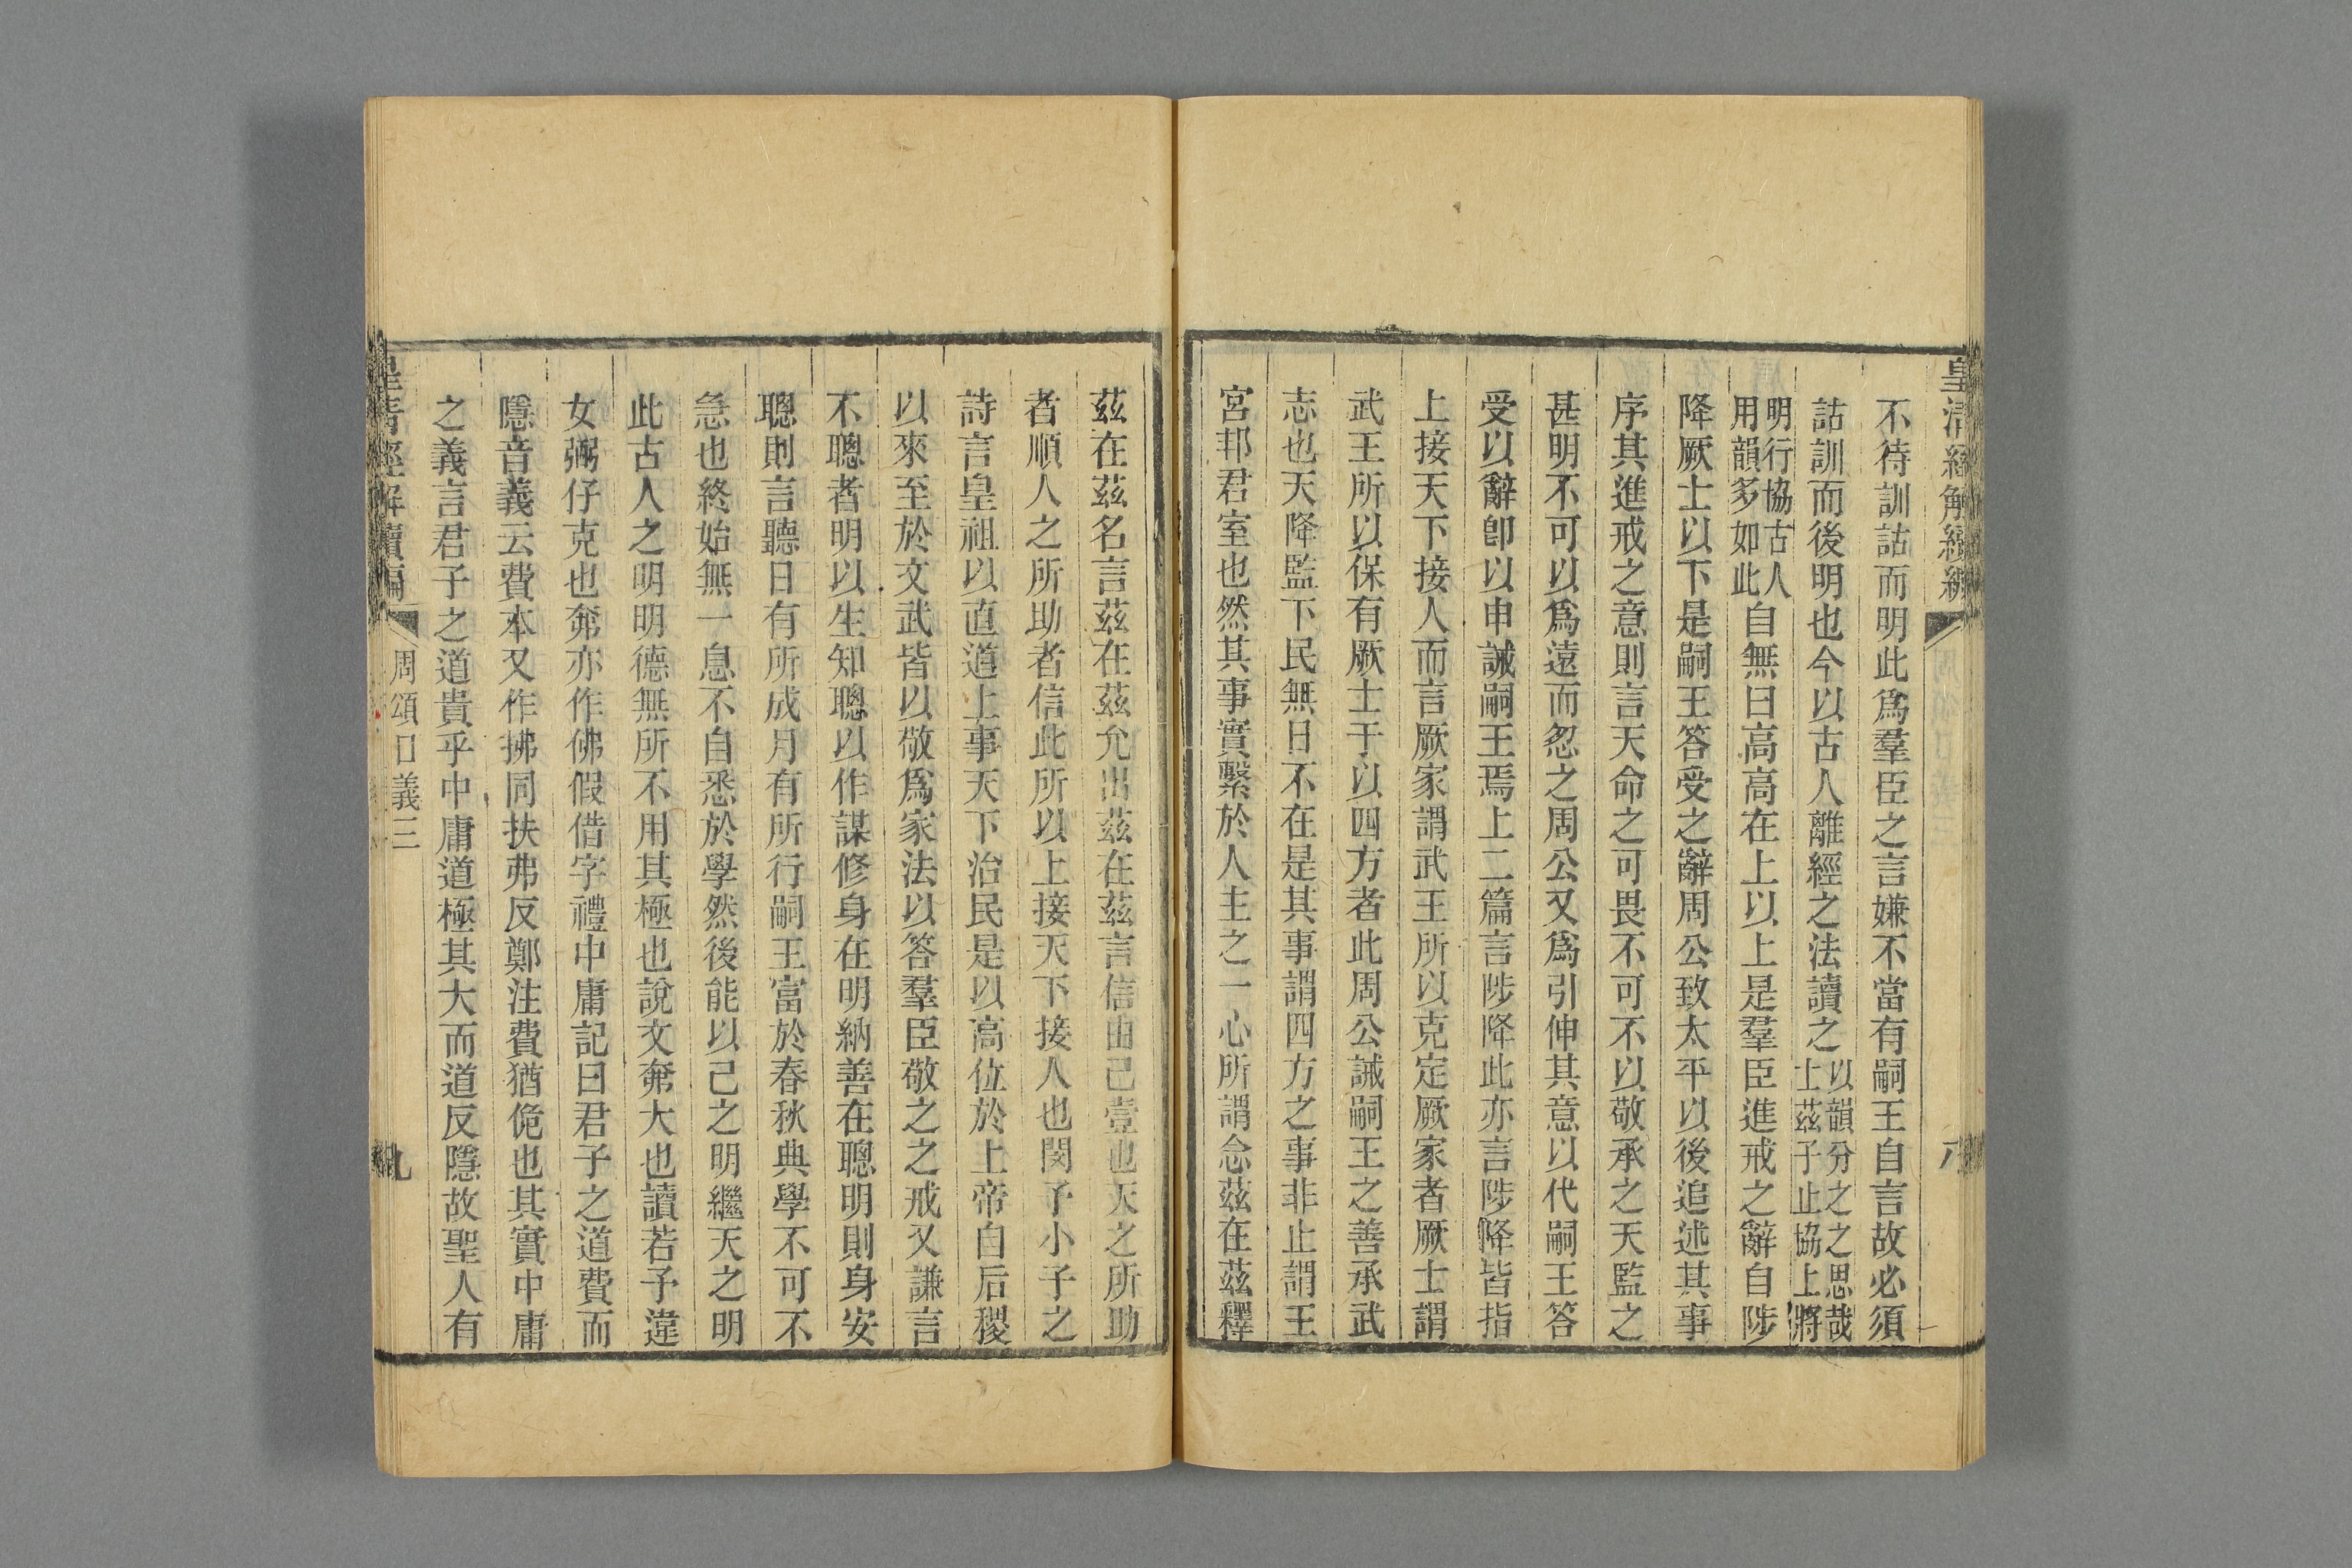 皇清經解續編
不待訓詁而明此爲羣臣之言嫌不當有嗣王自言故必須
詁訓而後明也今以古人離經之法讀之以韻分之之思哉
士茲子止協上將
明行協古人
用韻多如此自無曰高高在上以上是羣臣進戒之辭自陟
降厥士以下是嗣王答受之辭周公致太平以後追述其事
序其進戒之意則言天命之可畏不可不以敬承之天監之
甚明不可以爲遠而忽之周公又爲引伸其意以代嗣王答
受以辭卽以申誡嗣王焉上二篇言陟降此亦言陟降皆指
上接天下接人而言厥家謂武王所以克定厥家者厥士謂
武王所以保有厥士于以四方者此周公誡嗣王之善承武
志也天降監下民無日不在是其事謂四方之事非止謂王
宮邦君室也然其事實繫於人主之一心所謂念茲在茲釋
茲在茲名言茲在茲允出茲在茲言信由己壹也天之所助
者順人之所助者信此所以上接天下接人也閔予小子之
詩言皇祖以直道上事天下治民是以高位於上帝自后稷
以來至於文武皆以敬爲家法以答羣臣敬之之戒又謙言
不聰者明以生知聰以作謀修身在明納善在聰明則身安
聰則言聽日有所成月有所行嗣王富於春秋典學不可不
急也終始無一息不自悉於學然後能以己之明繼天之明
此古人之明明德無所不用其極也說文奰大也讀若予違
女弼仔克也奰亦作佛假借字禮中庸記曰君子之道費而
隱音義云費本又作拂同扶弗反鄭注費猶佹也其實中庸
之義言君子之道貴乎中庸道極其大而道反隱故聖人有
皇清經解續編
周頌口義三
九